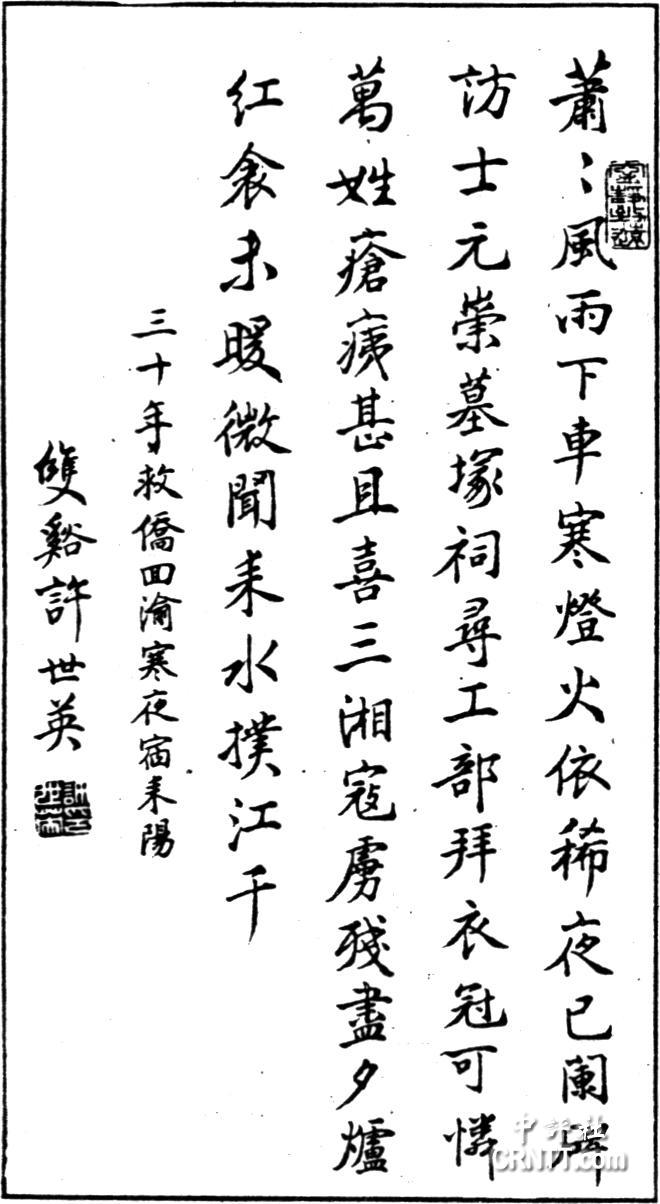 蕭〻風雨下車寒燈火依稀夜已闌碑
訪士元崇墓塚祠尋工部拜衣冠可憐
萬姓瘡痍甚且喜三湘寇虜殘盡夕爐
紅衾未暖微聞耒水撲江干
三十年救僑回渝寒夜宿耒陽
雙谿許世英
中評社
CRNTT.com